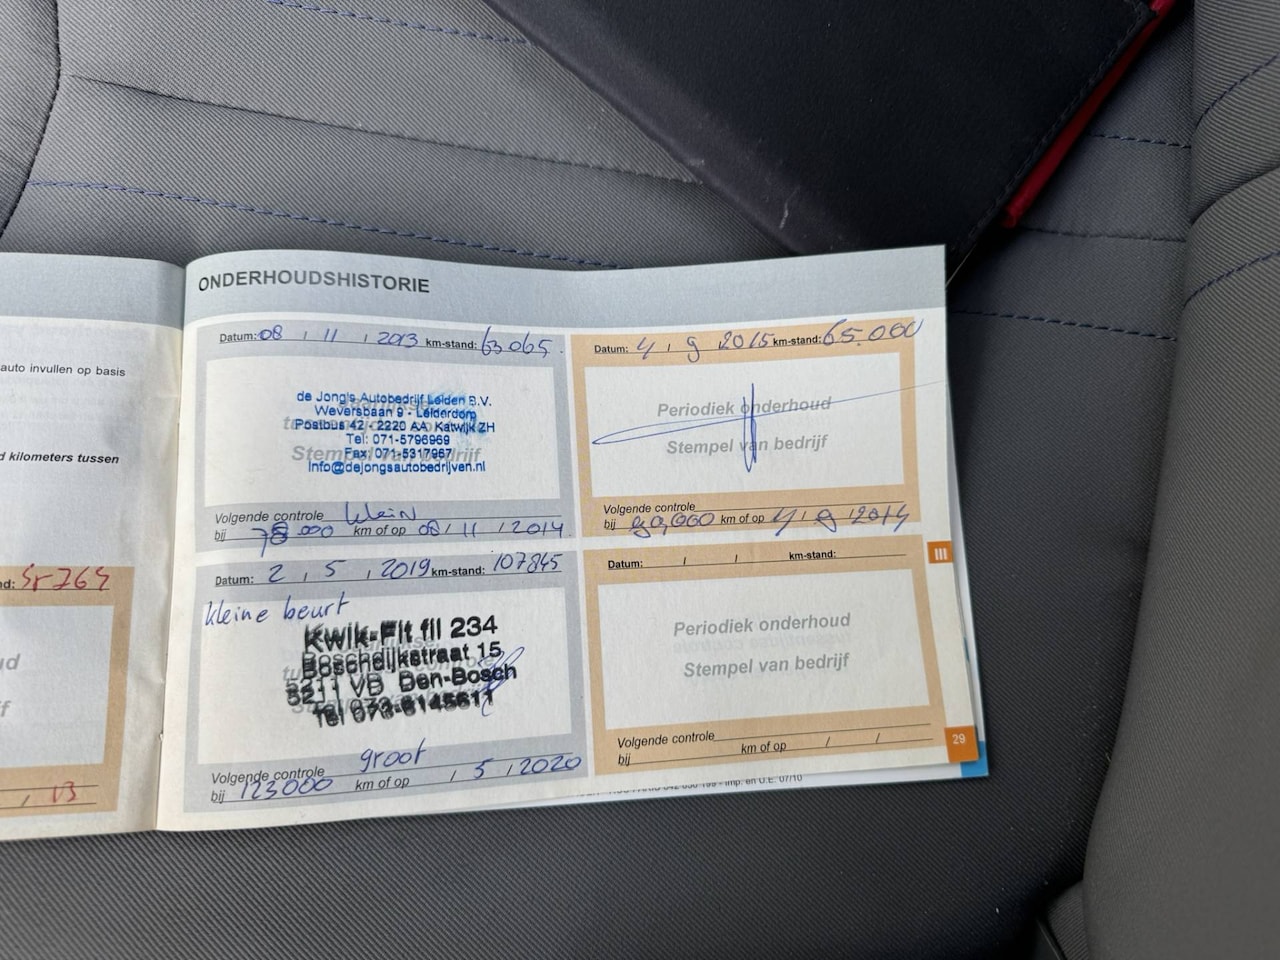 auto invullen op basis
d kilometers tussen
ONDERHOUDSHISTORIE
Datum: 08 / 11 / 2013 km-stand: 63065
de Jong's Autobedrijf Leiden B.V.
Weversbaan 9 - Leiderdorp
Postbus 42 - 2220 AA Katwijk ZH
Tel: 071-5796969
Fax: 071-5317967
Info@dejongsautobedrijven.nl
Stempel van bedrijf
Volgende controle klein
bij 78.000 km of op 08 / 11 / 2014
Datum: 4 / 9 2015 km-stand: 65.000
Periodiek onderhoud
Stempel van bedrijf
Volgende controle
bij km of op 4 / 9 /
Datum: 2 / 5 / 2019 km-stand: 107845
kleine beurt
Kwik-Fit fil 234
Boschdijkstraat 15
5211 VB Den-Bosch
Tel 073-6145611
Volgende controle groot
bij 123000 km of op / 5 / 2020
Datum: / / km-stand:
Periodiek onderhoud
Stempel van bedrijf
Volgende controle
bij km of op / /
III
29